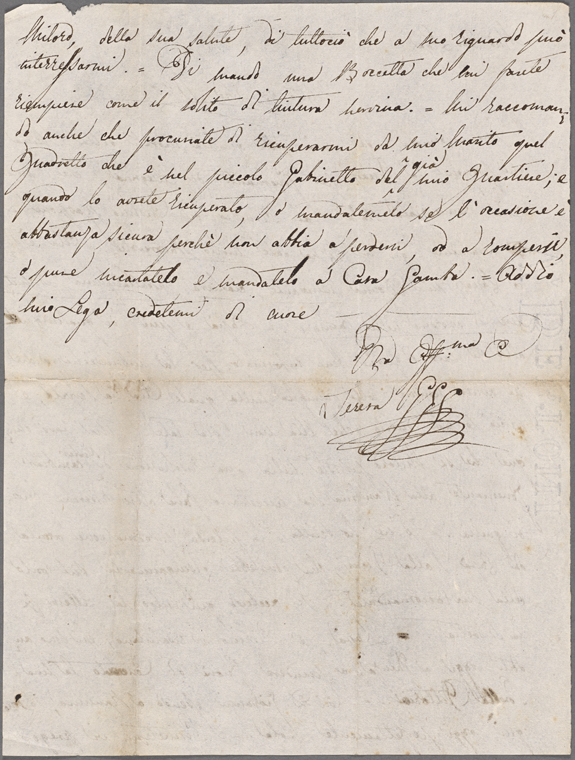 Milord, della sua salute, di tuttociò che a suo riguardo può
interressarmi. = Vi mando una Boccetta che mi farete
riempiere come il solito di tintura nervina. = Mi raccoman-
do anche che procuriate di ricuperarmi da mio Marito quel
Quadretto che è nel piccolo Gabinetto del già mio Quartiere; e
quando lo avrete ricuperato, o mandatemelo se l'occasione è
abbastanza sicura perchè non abbia a perdersi, od a rompersi,
o pure incartatelo e mandatelo a Casa Gamba. = Addio
mio Lega, credetemi di cuore —
Aff:ma
Teresa